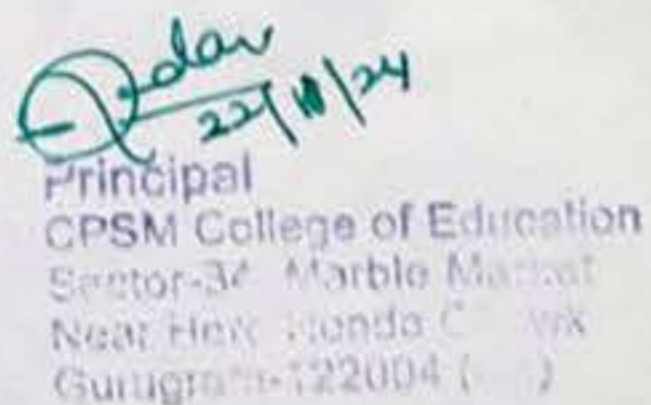 22/11/24
Principal
CPSM College of Education
Sector-34 Marble Market
Near Hero Honda
Gurugram-122004